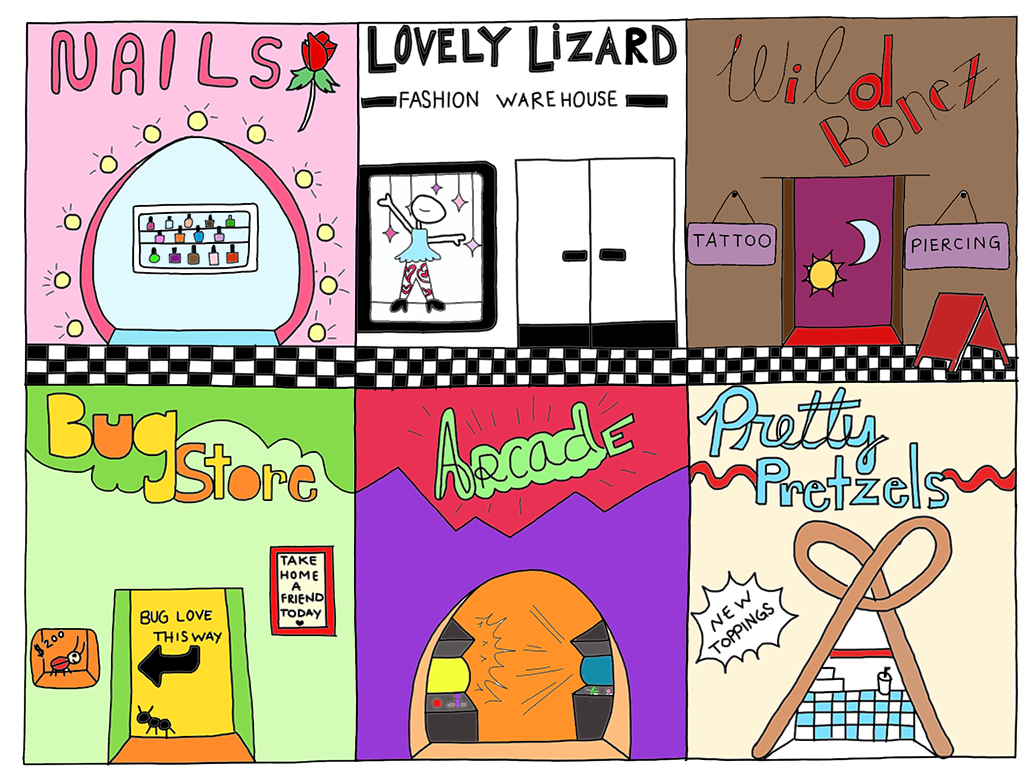 NAILS
LOVELY LiZARD
FASHION WAREHOUSE
Wild
Bonez
TATTOO
PIERCING
Bug
Store
TAKE
HOME
A
FRIEND
TODAY
BUG LOVE
THIS WAY
$200
ARcadE
Pretty
Pretzels
NEW
TOPPINGS